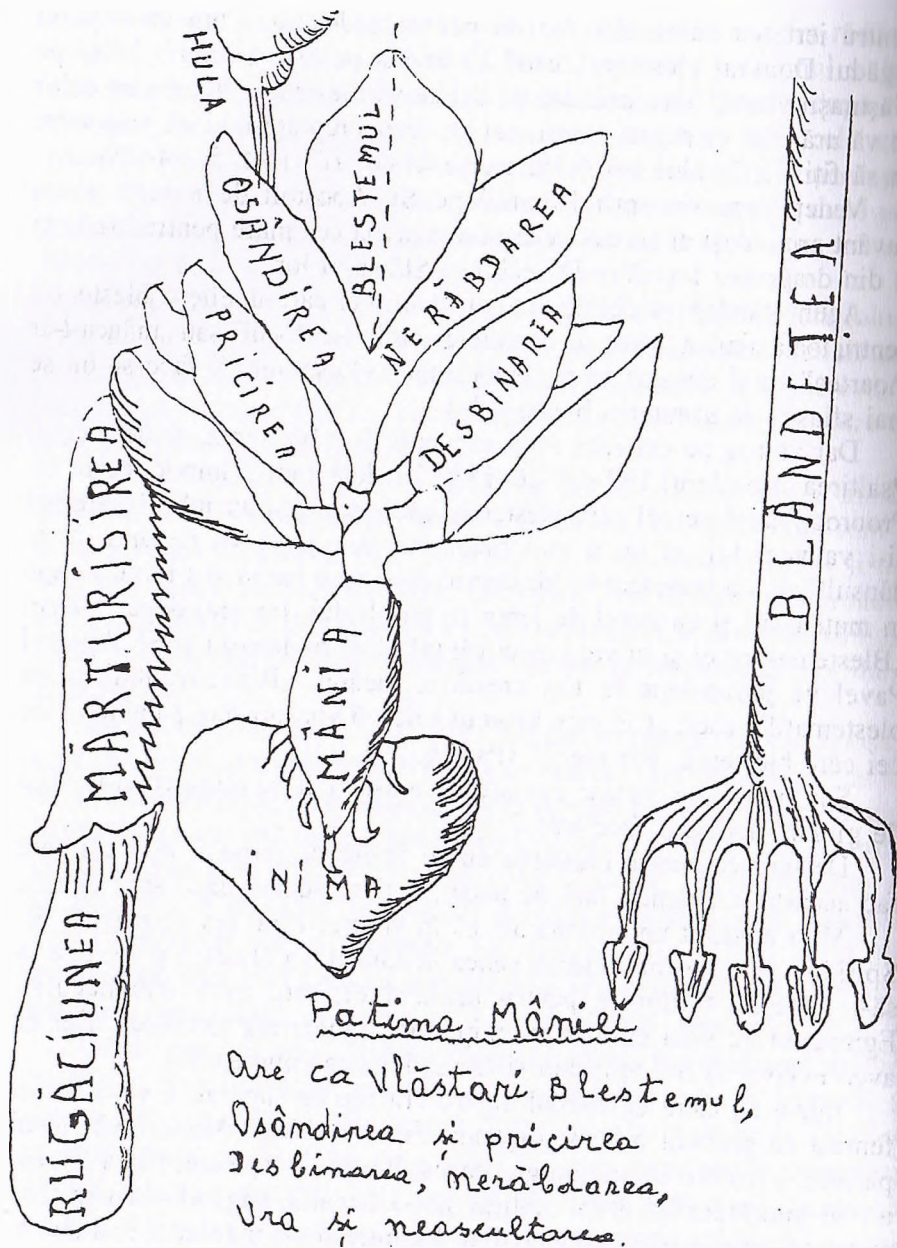 HULA
BLESTEMUL
OSÂNDIREA
NERĂBDAREA
PRICIREA
DESBINAREA
MÂNIA
INIMA
MĂRTURISIREA
RUGĂCIUNEA
BLÂNDEȚEA
Patima Mâniei
Are ca Vlăstari Blestemul,
Osândirea și pricirea
Desbinarea, nerăbdarea,
Ura și neascultarea.